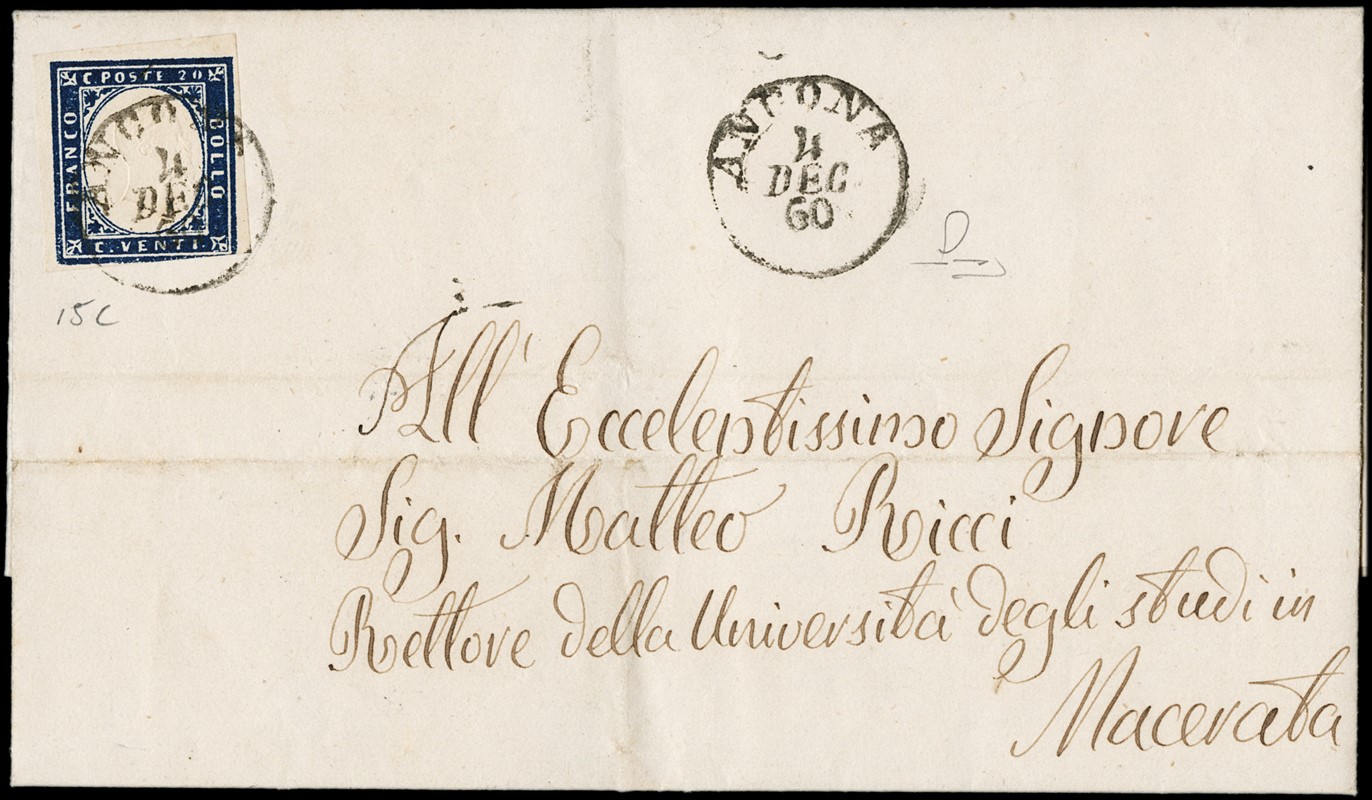 C. POSTE 20
FRANCO
BOLLO
C. VENTI.
ANCONA
4
DE
ANCONA
4
DEC
60
15 C
All' Eccelentissimo Signore
Sig. Matteo Ricci
Rettore della Università degli studi in
Macerata